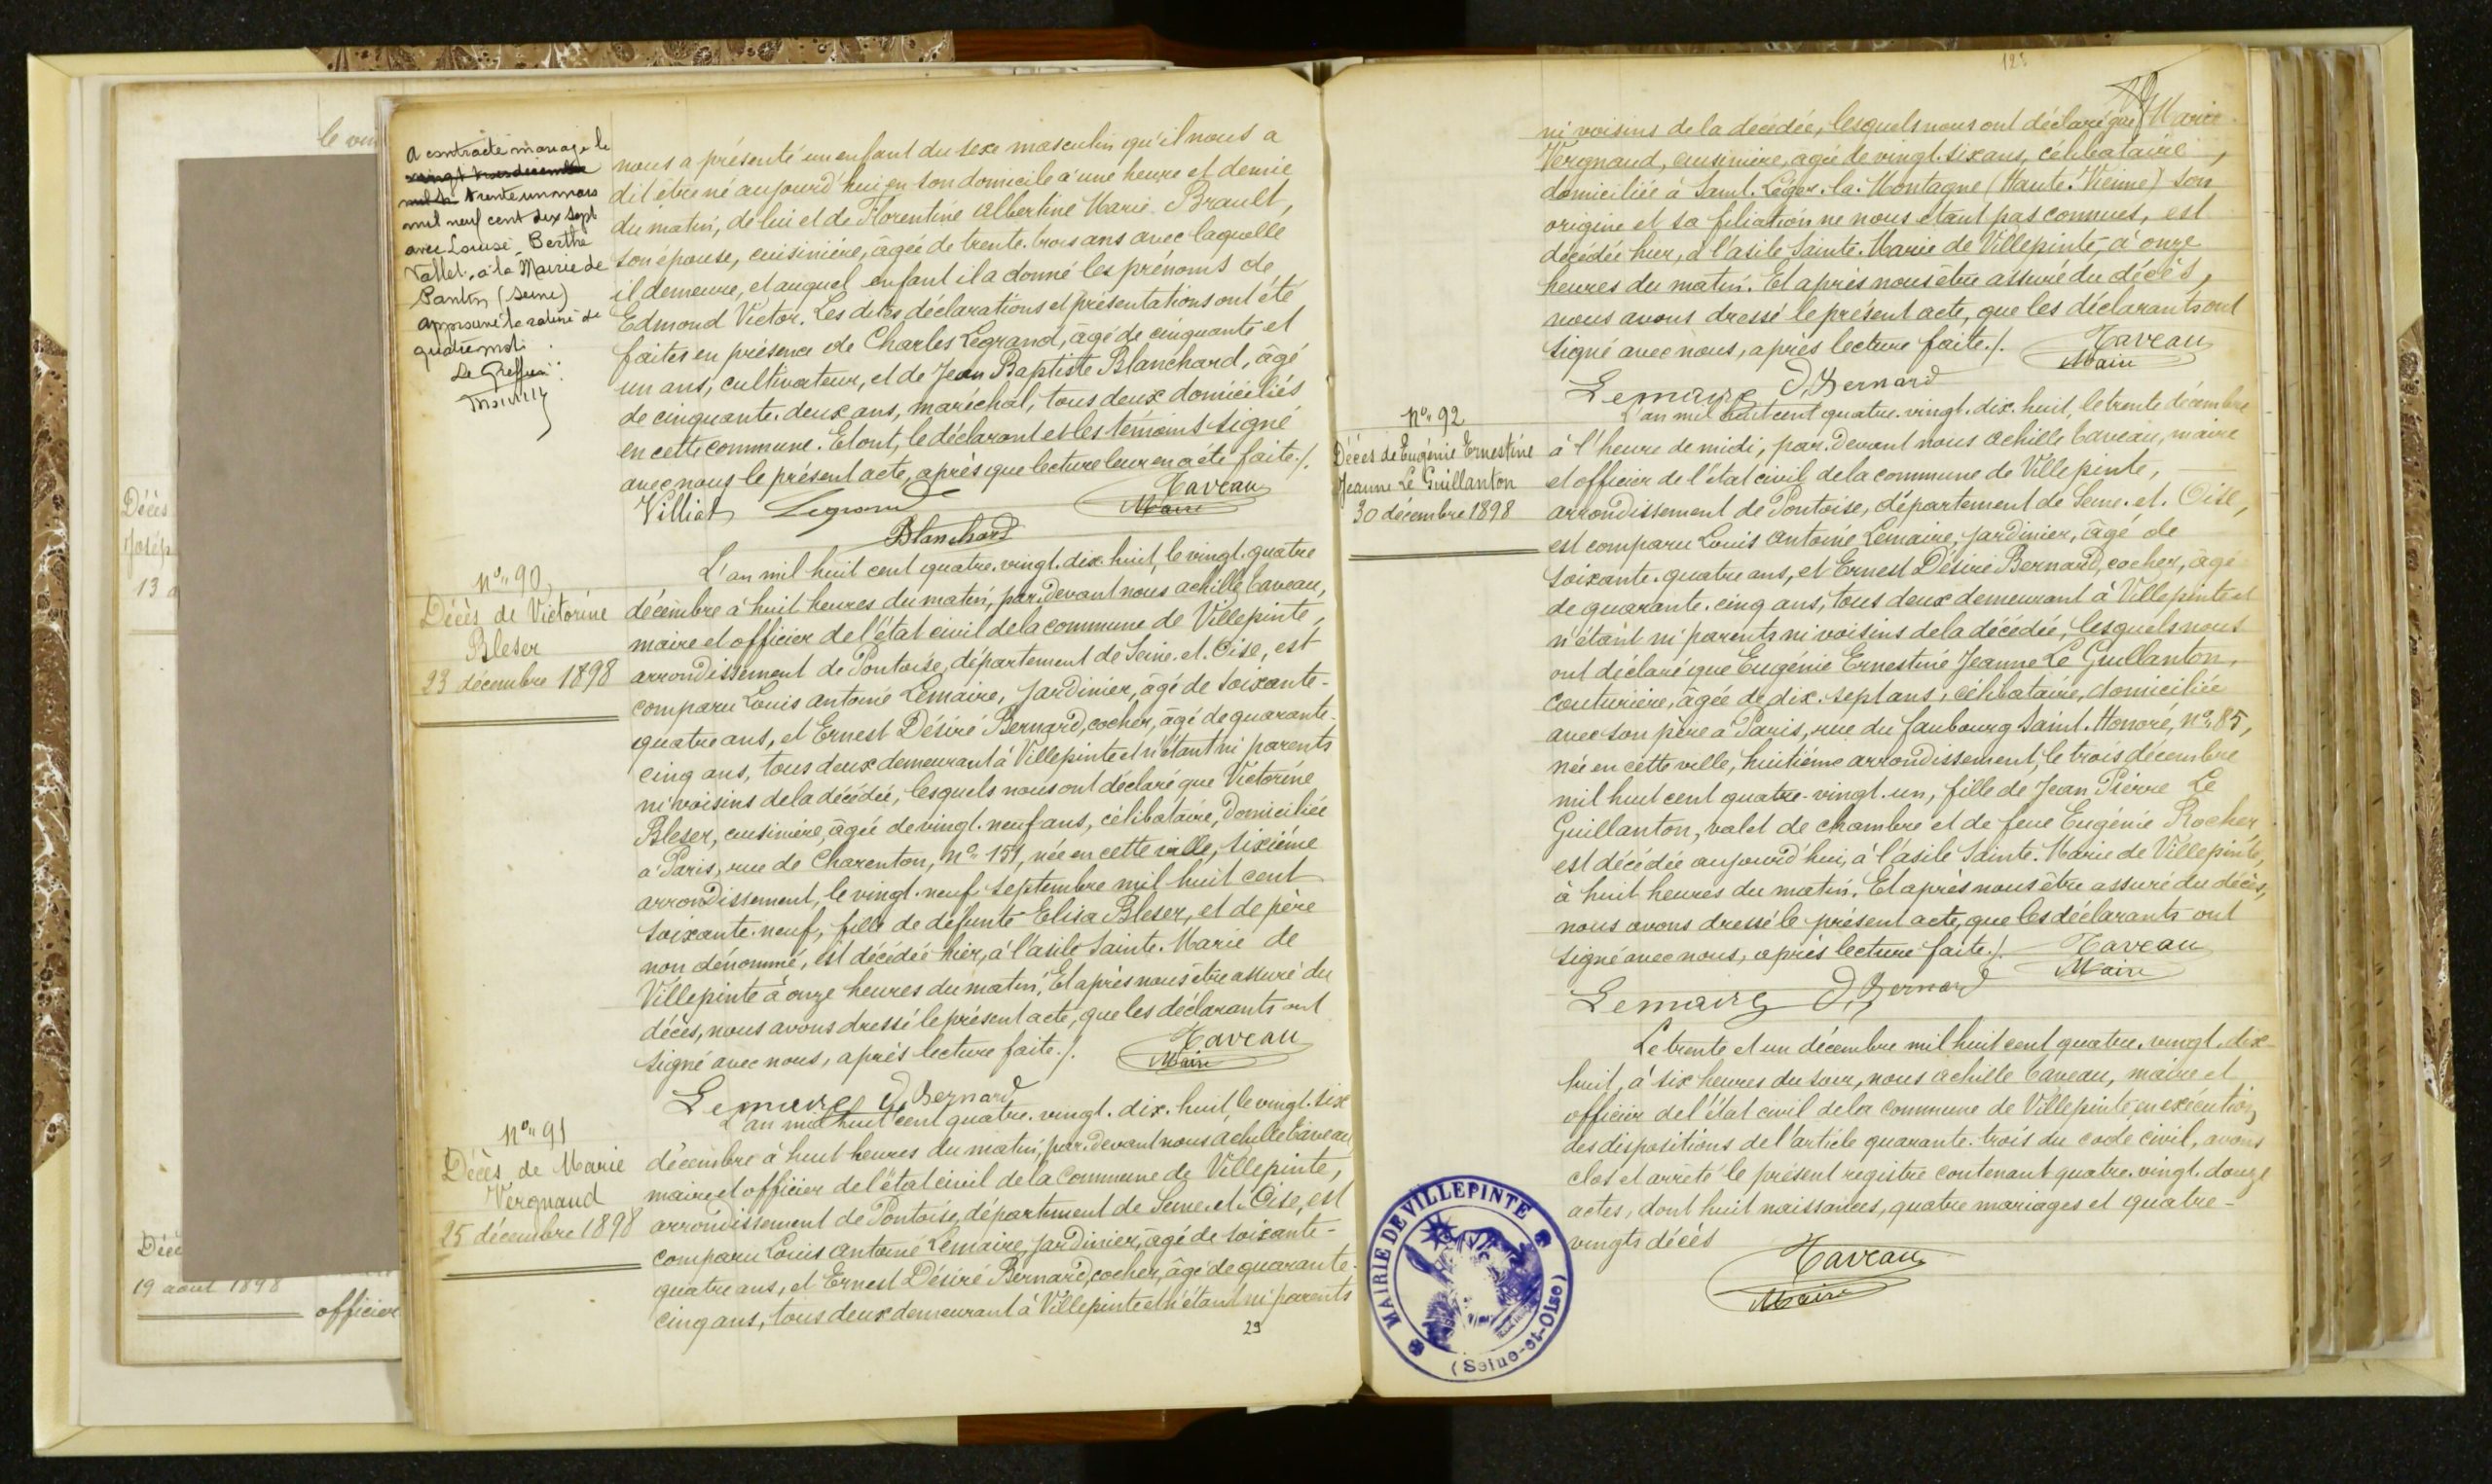 le vin
Décès
Josép
13 a
Déc
19 août 1898
officier
A contracté mariage le
vingt trois décembre
mil trente un mars
mil neuf cent dix sept
avec Louise Berthe
Vallet, à la Mairie de
Pantin (Seine)
approuvé la rature de
quatre mots.
Le Greffier:
nous a présenté un enfant du sexe masculin qu'il nous a
dit être né aujourd'hui en son domicile à une heure et demie
du matin, de lui et de Florentine Albertine Marie Brault,
son épouse, cuisinière, âgée de trente-trois ans avec laquelle
il demeure, et auquel enfant il a donné les prénoms de
Edmond Victor. Les dites déclarations et présentations ont été
faites en présence de Charles Legrand, âgé de cinquante et
un ans, cultivateur, et de Jean Baptiste Blanchard, âgé
de cinquante-deux ans, maréchal, tous deux domiciliés
en cette commune. Et ont, le déclarant et les témoins signé
avec nous le présent acte, après que lecture leur en a été faite./.
Villiot Legrand Taveau
Maire
Blanchard
No 90,
Décès de Victorine
Bleser
23 décembre 1898
L'an mil huit cent quatre-vingt-dix-huit, le vingt-quatre
décembre à huit heures du matin, par-devant nous Achille Taveau,
maire et officier de l'état civil de la commune de Villepinte,
arrondissement de Pontoise, département de Seine-et-Oise, est
comparu Louis Antoine Lemaire, jardinier, âgé de soixante-
quatre ans, et Ernest Désiré Bernard, cocher, âgé de quarante-
cinq ans, tous deux demeurant à Villepinte et n'étant ni parents
ni voisins de la décédée, lesquels nous ont déclaré que Victorine
Bleser, cuisinière, âgée de vingt-neuf ans, célibataire, domiciliée
à Paris, rue de Charenton, no 151, née en cette ville, sixième
arrondissement, le vingt-neuf septembre mil huit cent
soixante-neuf, fille de défunte Elisa Bleser, et de père
non dénommé, est décédée hier, à l'asile Sainte-Marie de
Villepinte à onze heures du matin. Et après nous être assuré du
décès, nous avons dressé le présent acte, que les déclarants ont
signé avec nous, après lecture faite./. Taveau
Maire
Lemaire D. Bernard
No 91
Décès de Marie
Vergnaud
25 décembre 1898
L'an mil huit cent quatre-vingt-dix-huit, le vingt-six
décembre à huit heures du matin, par-devant nous Achille Taveau
maire et officier de l'état civil de la commune de Villepinte,
arrondissement de Pontoise, département de Seine-et-Oise, est
comparu Louis Antoine Lemaire, jardinier, âgé de soixante-
quatre ans, et Ernest Désiré Bernard, cocher, âgé de quarante-
cinq ans, tous deux demeurant à Villepinte et n'étant ni parents
29
ni voisins de la décédée, lesquels nous ont déclaré que Marie
Vergnaud, cuisinière, âgée de vingt-six ans, célibataire,
domiciliée à Saint-Léger-la-Montagne (Haute-Vienne) son
origine et sa filiation ne nous étant pas connues, est
décédée hier, à l'asile Sainte-Marie de Villepinte, à onze
heures du matin. Et après nous être assuré du décès,
nous avons dressé le présent acte, que les déclarants ont
signé avec nous, après lecture faite./. Taveau
Maire
Lemaire D. Bernard
No 92
Décès de Eugénie Ernestine
Jeanne Le Guillanton
30 décembre 1898
L'an mil huit cent quatre-vingt-dix-huit, le trente décembre
à l'heure de midi, par-devant nous Achille Taveau, maire
et officier de l'état civil de la commune de Villepinte,
arrondissement de Pontoise, département de Seine-et-Oise,
est comparu Louis Antoine Lemaire, jardinier, âgé de
soixante-quatre ans, et Ernest Désiré Bernard, cocher, âgé
de quarante-cinq ans, tous deux demeurant à Villepinte et
n'étant ni parents ni voisins de la décédée, lesquels nous
ont déclaré que Eugénie Ernestine Jeanne Le Guillanton,
couturière, âgée de dix-sept ans, célibataire, domiciliée
avec son père à Paris, rue du faubourg Saint-Honoré, no 85,
née en cette ville, huitième arrondissement, le trois décembre
mil huit cent quatre-vingt-un, fille de Jean Pierre Le
Guillanton, valet de chambre et de feue Eugénie Rocher,
est décédée aujourd'hui, à l'asile Sainte-Marie de Villepinte,
à huit heures du matin. Et après nous être assuré du décès,
nous avons dressé le présent acte, que les déclarants ont
signé avec nous, après lecture faite./. Taveau
Maire
Lemaire D. Bernard
Le trente et un décembre mil huit cent quatre-vingt-dix-
huit, à six heures du soir, nous Achille Taveau, maire et
officier de l'état civil de la commune de Villepinte en exécution
des dispositions de l'article quarante-trois du code civil, avons
clos et arrêté le présent registre contenant quatre-vingt-douze
actes, dont huit naissances, quatre mariages et quatre-
vingts décès
Taveau
Maire
MAIRIE DE VILLEPINTE
(Seine-et-Oise)